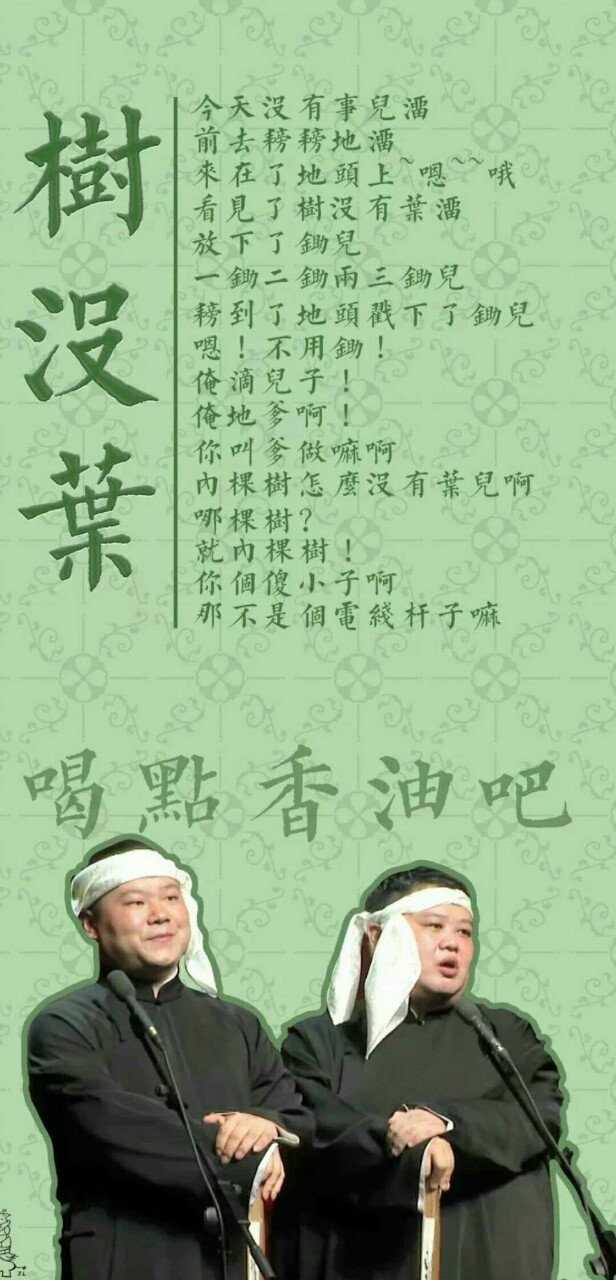 樹沒葉
今天沒有事兒澑
前去耪耪地澑
來在了地頭上~嗯~~哦
看見了樹沒有葉澑
放下了鋤兒
一鋤二鋤兩三鋤兒
耪到了地頭戳下了鋤兒
嗯！不用鋤！
俺滴兒子！
俺地爹啊！
你叫爹做嘛啊
內棵樹怎麼沒有葉兒啊
哪棵樹？
就內棵樹！
你個傻小子啊
那不是個電綫杆子嘛
喝點香油吧